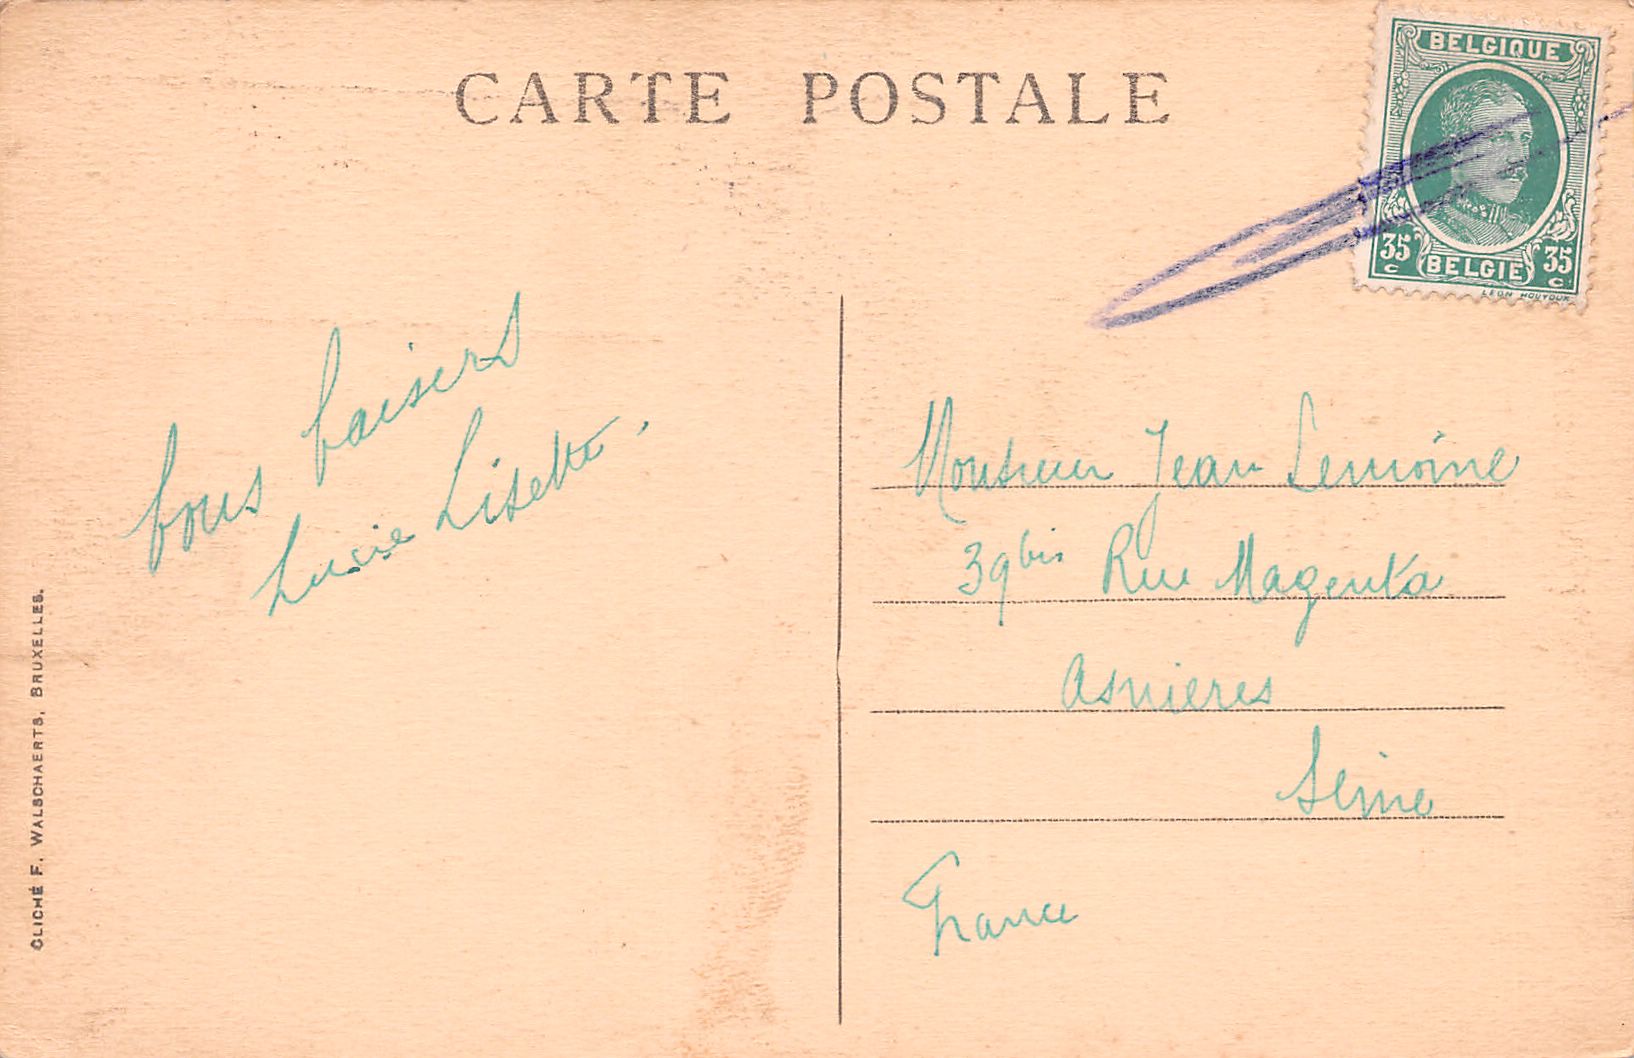 CARTE POSTALE
BELGIQUE
35 c BELGIE 35 c
LEON HOUYOUX
bons baisers
Lucie Lisette.
Monsieur Jean Lemoine
39 bis Rue Magenta
Asnieres
Seine
France
CLICHÉ F. WALSCHAERTS, BRUXELLES.